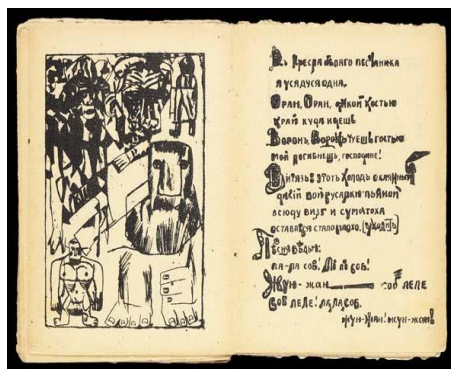 Въ кресла белаго песчаника
я усядуся одна.
Оран, Оран, дикой костью
край куда идешь
Воронъ, Воронъ чуешь гостью
мой погибнешь, господине!
Витязь: этотъ холодъ окаянный
дикiй вой русалки пьяной
всюду визг и суматоха
оставаться стало плохо. (уходитъ)
Песня ведьм:
ла-ла сов! ли ли соб!
Жун-жан соб леле
соб леле! ла ла соб.
жун-жан! жун-жан